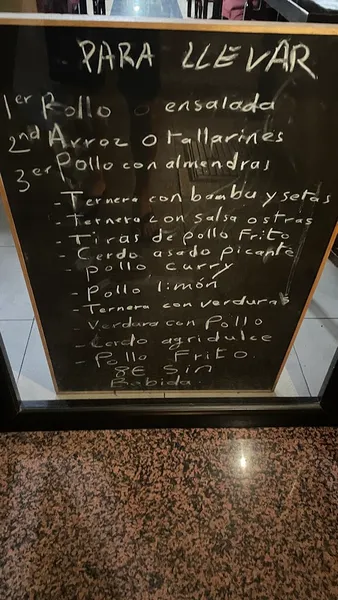 PARA LLEVAR
1er Rollo o ensalada
2nd Arroz o tallarines
3er Pollo con almendras
- Ternera con bambu y setas
- Ternera con salsa ostras
- Tiras de pollo Frito
- Cerdo asado picante
- Pollo curry
- Pollo limón
- Ternera con verdura
- Verdura con Pollo
- Cerdo agridulce
- Pollo Frito.
8€ Sin
Babida.